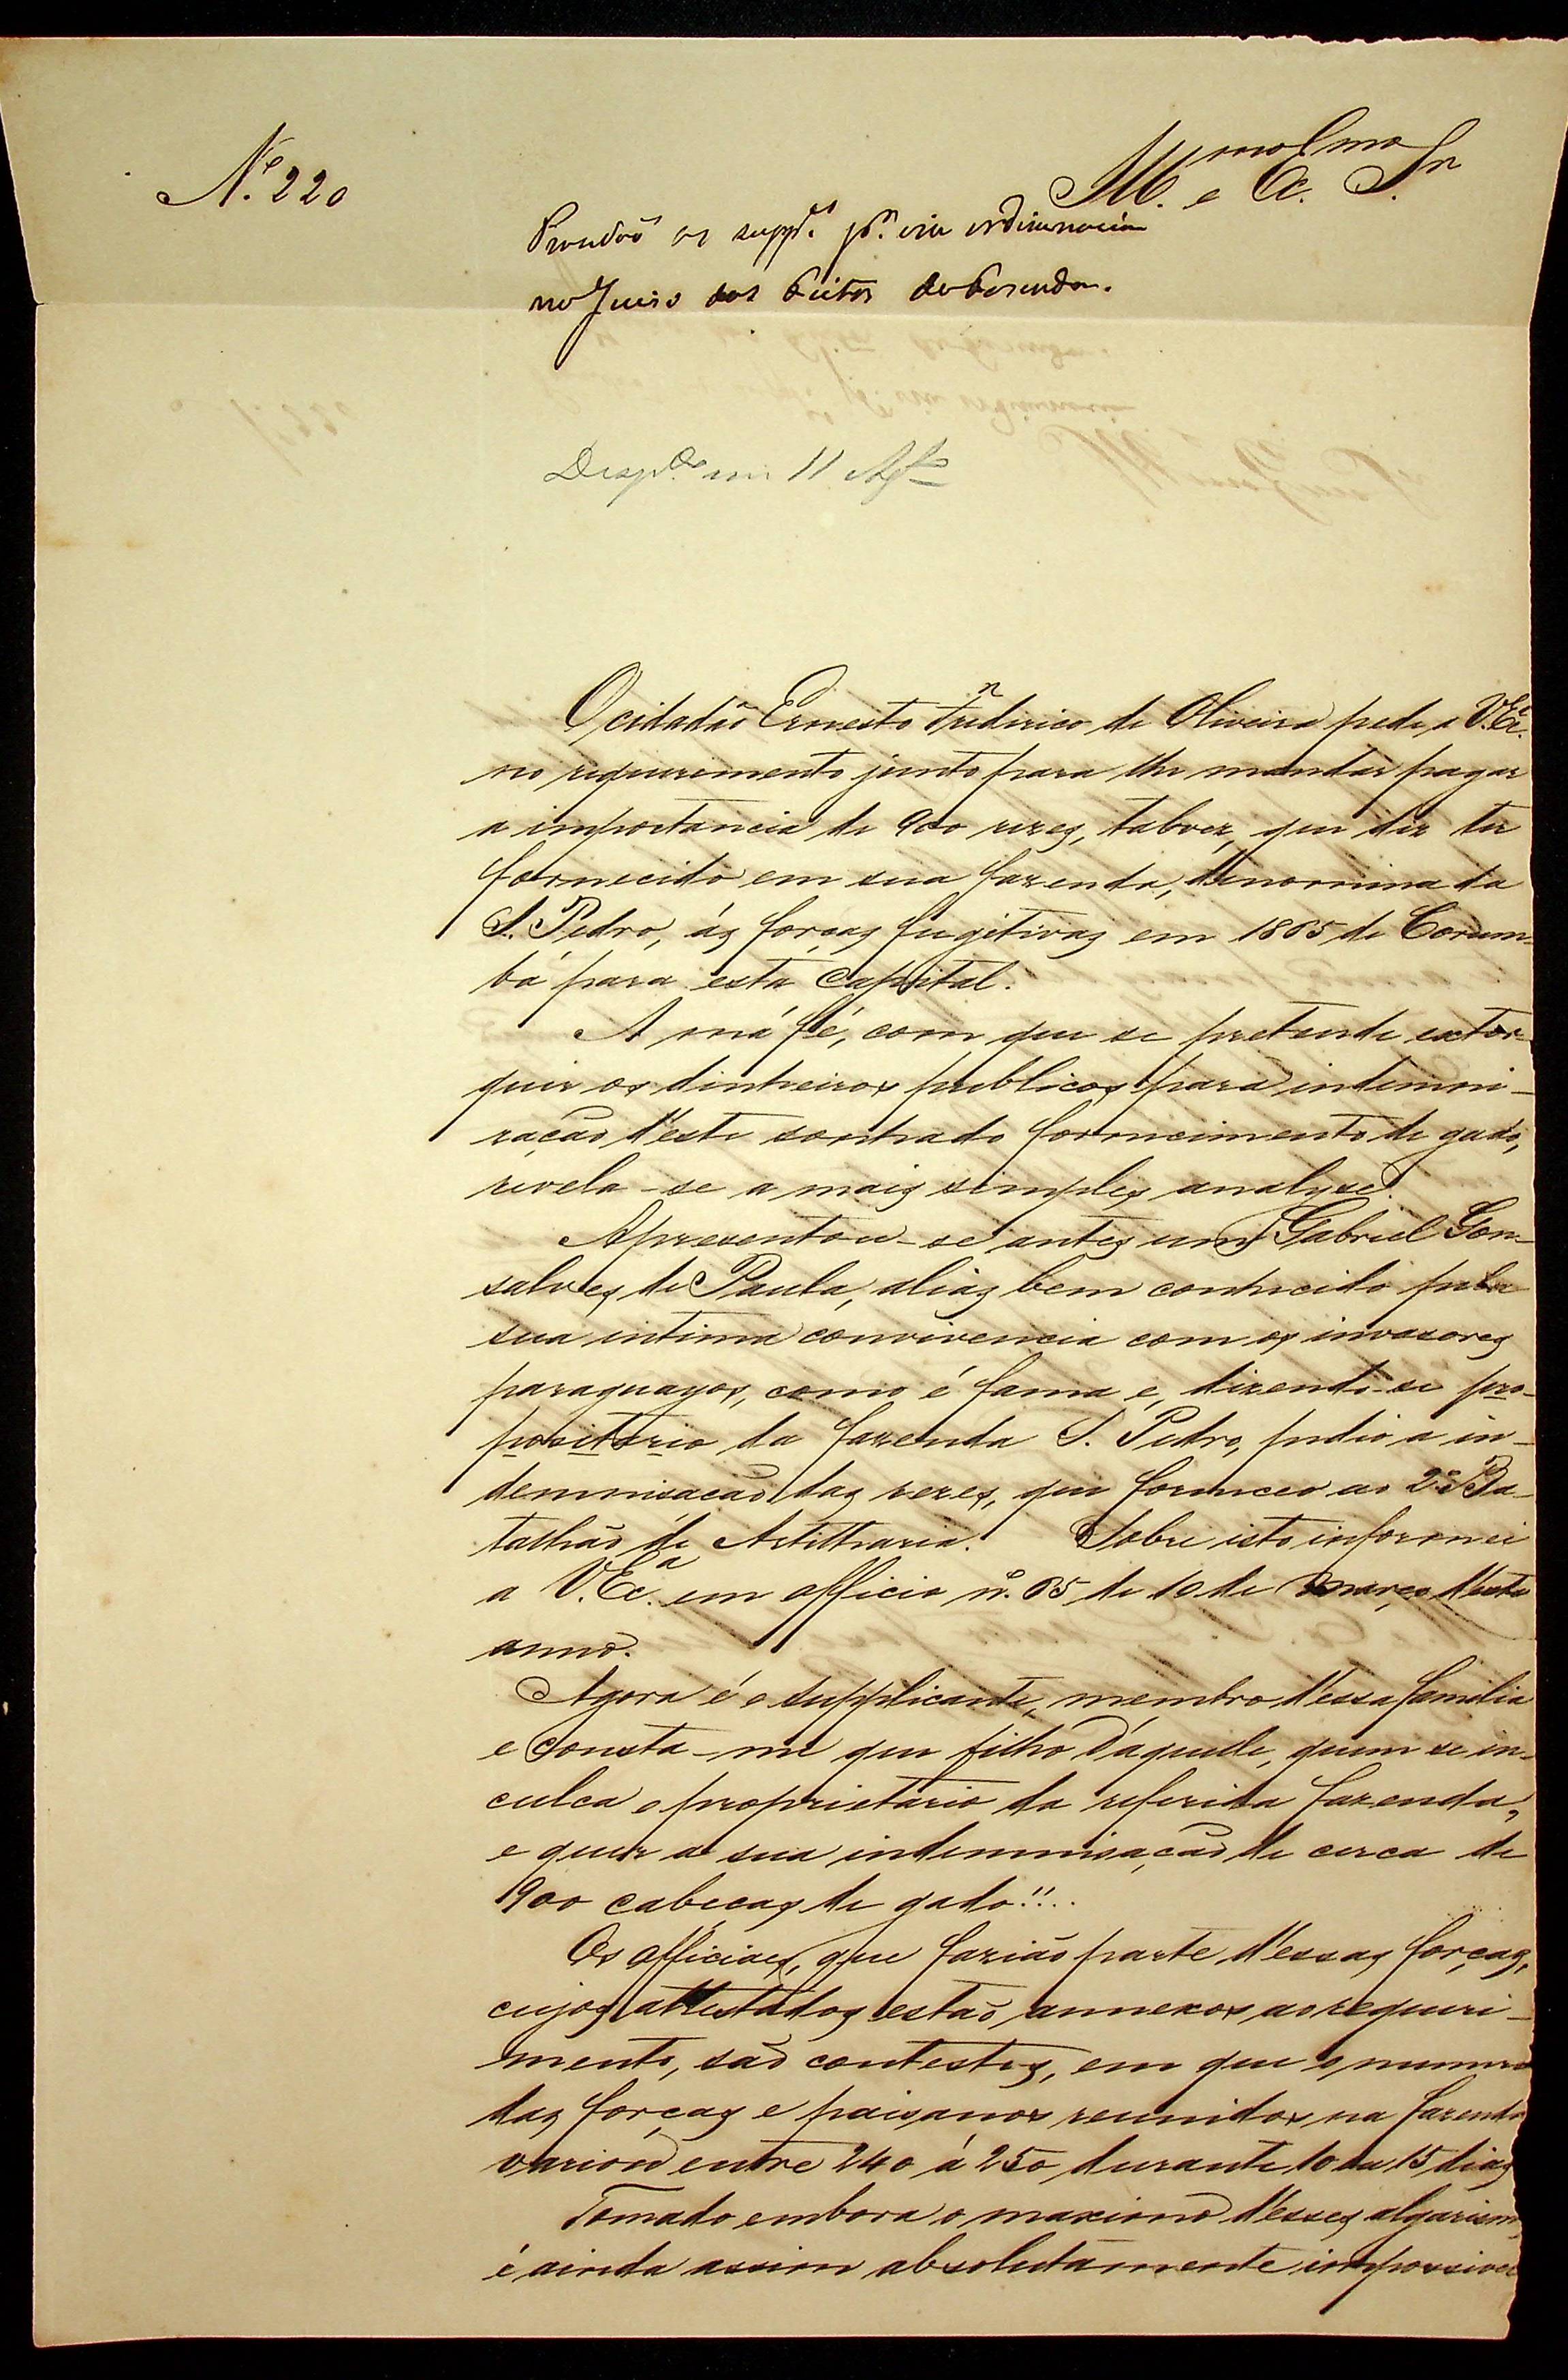 N.º 220
Ill.mo e Ex.mo Sr.
os supp.es p.r via ordinaria
no Juizo dos Feitos da Fazenda.
Desp.do em 11 Ag.to
O cidadão Ernesto Frederico de Oliveira pede a V. Ex.ª
no requerimento junto para lhe mandar pagar
a importancia de 900 rezes, talvez, que diz ter
fornecido em sua fazenda, denominada
S. Pedro, ás forças fugitivas em 1865 de Corum-
bá para esta Capital.
A má fé, com que se pretende extor-
quir os dinheiros publicos para indemni-
zação d'este sonhado fornecimento de gado,
revela-se a mais simples analyse.
Apresentou-se antes um Gabriel Gon-
salves de Paula, aliaz bem conhecido pela
sua intima convivencia com os invasores
paraguayos, como é fama e, dizendo-se pro-
positario da fazenda S. Pedro, pedio a in-
demnisação das rezes, que forneceo ao 2.º Ba-
talhão de Artilharia. Sobre isto informei
a V. Ex.ª em officio n.º 65 de 10 de Março d'este
anno.
Agora é o supplicante, membro d'essa familia
e consta-me que filho d'aquelle, quem se in-
culca o proprietario da referida fazenda,
e quer a sua indemnisação de cerca de
900 cabeças de gado!!..
Os officiaes, que fazião parte d'essas forças,
cujos attestados estão annexos ao requeri-
mento, são contestes, em que o numero
das forças e paisanos reunidos na fazenda
variou entre 240 á 250 durante 10 ou 15 dias
Tomado embora o maximo d'esses algarismos
é ainda assim absolutamente impossivel